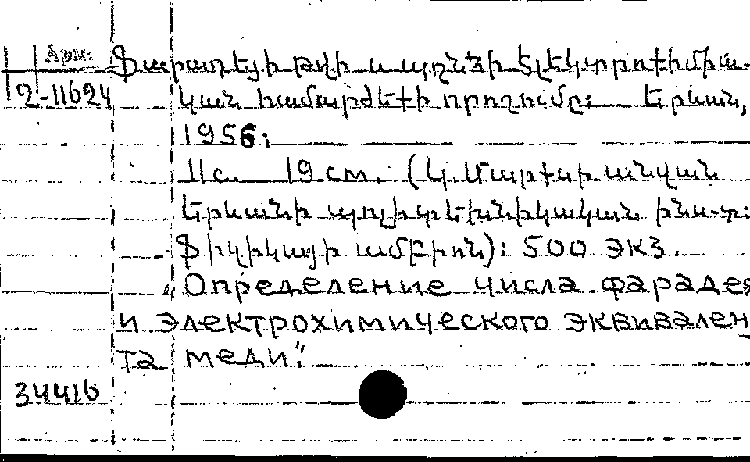 Արմ.
Ֆարադեյի թվի և պղնձի էլեկտրոքիմիա-
2-11624 կան համարժեքի որոշումը: Երևան,
1956:
11 с. 19 см. (Կ. Մարքսի անվան
Երևանի պոլիտեխնիկական ինս-տ:
Ֆիզիկայի ամբիոն): 500 экз.
„Определение числа фарадея
и электрохимического эквивален
та меди“.
34416